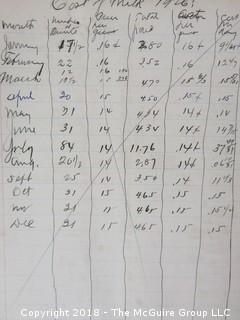 Cost of Milk 1926.
Month Number Quarts per quart Total paid per quart Cost per day
January 17½ 16¢ 2.80 .16¢
February 22 .16 3.52 .16
March 12 16 4.70 15
April 30 15 4.50 .15¢ .15
May 31 14 4.34 14¢ .14
June 31 14 4.34 .14¢
July 84 14 11.76 .14¢
Aug. 20½ 14 2.87 .14¢
Sept 25 14 3.50 .14
Oct 31 15 465 .15 .15
Nov 31 15 465 .15
Dec 31 15 465 .15 .15
Copyright 2018 - The McGuire Group LLC